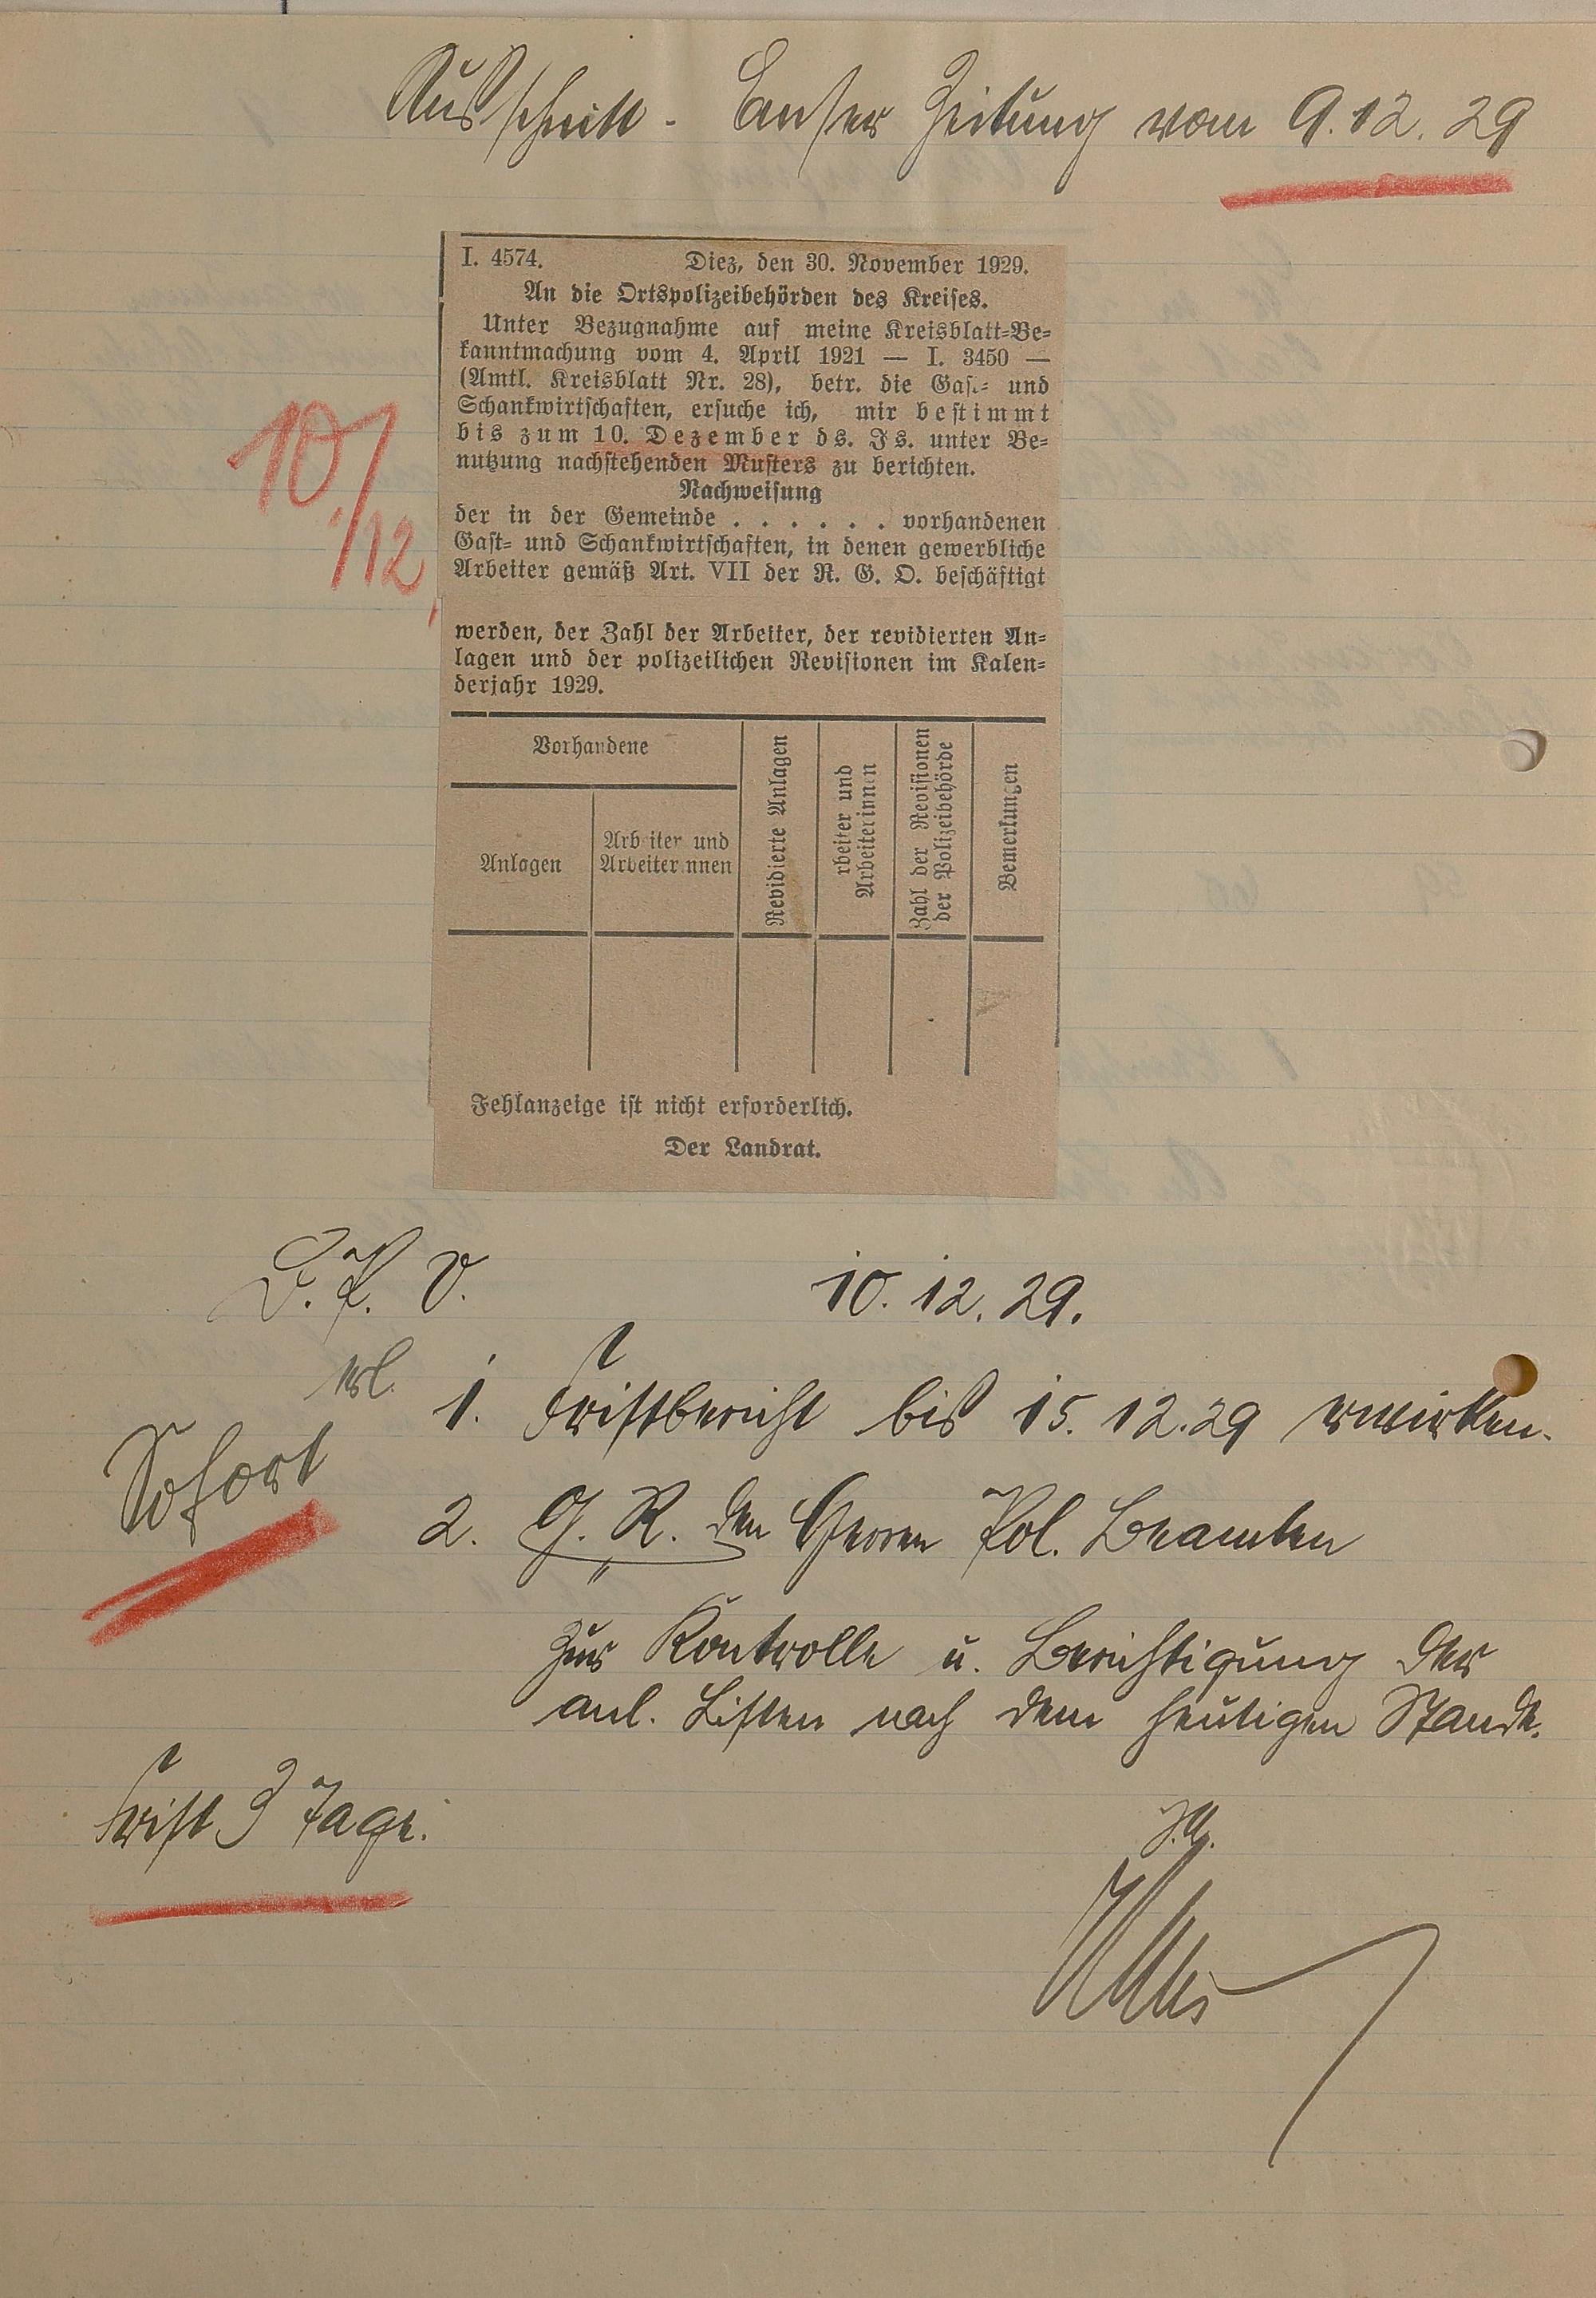 Ausschnitt - Emser Zeitung vom 9.12.29
I. 4574. Diez, den 30. November 1929.
An die Ortspolizeibehörden des Kreises.
Unter Bezugnahme auf meine Kreisblatt-Be-
kanntmachung vom 4. April 1921 — I. 3450 —
(Amtl. Kreisblatt Nr. 28), betr. die Gas.- und
Schankwirtschaften, ersuche ich, mir bestimmt
bis zum 10. Dezember ds. Js. unter Be-
nutzung nachstehenden Musters zu berichten.
10./12.
Nachweisung
der in der Gemeinde . . . . . . vorhandenen
Gast- und Schankwirtschaften, in denen gewerbliche
Arbeiter gemäß Art. VII der R. G. O. beschäftigt
werden, der Zahl der Arbeiter, der revidierten An-
lagen und der polizeilichen Revisionen im Kalen-
derjahr 1929.
Vorhandene
Anlagen
Arb iter und
Arbeiter nnen
Revidierte Anlagen
rbeiter und
Arbeiterinnen
Zahl der Revisionen
der Polizeibehörde
Bemerkungen
Fehlanzeige ist nicht erforderlich.
Der Landrat.
D. P. V. 10.12.29.
erl.
1. Fristbericht bis 15.12.29 erwirken.
Sofort
2. G. R. den Herren Pol. Beamten
zur Kontrolle u. Berichtigung der
anl. Listen nach dem heutigen Stande.
Frist 3 Tage.
J.A.